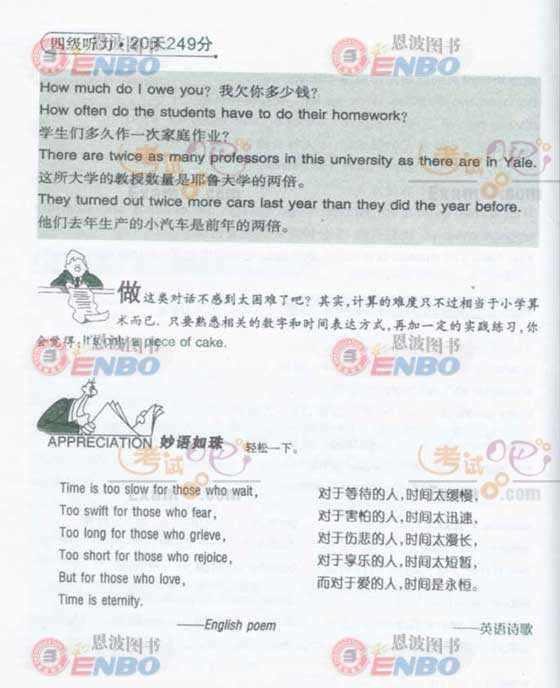 四级听力·20天249分
How much do I owe you? 我欠你多少钱?
How often do the students have to do their homework?
学生们多久作一次家庭作业?
There are twice as many professors in this university as there are in Yale.
这所大学的教授数量是耶鲁大学的两倍。
They turned out twice more cars last year than they did the year before.
他们去年生产的小汽车是前年的两倍。
做这类对话不感到太困难了吧? 其实,计算的难度只不过相当于小学算
术而已. 只要熟悉相关的数字和时间表达方式,再加一定的实践练习,你
会觉得: It's only a piece of cake.
APPRECIATION 妙语如珠 轻松一下。
Time is too slow for those who wait,
Too swift for those who fear,
Too long for those who grieve,
Too short for those who rejoice,
But for those who love,
Time is eternity.
——English poem
对于等待的人,时间太缓慢;
对于害怕的人,时间太迅速,
对于伤悲的人,时间太漫长,
对于享乐的人,时间太短暂,
而对于爱的人,时间是永恒。
——英语诗歌
恩波图书
ENBO
恩波图书
ENBO
考试吧
Exam8.com
考试吧
Exam8.com
恩波图书
ENBO
恩波图书
ENBO
考试吧
Exam8.com
考试吧
Exam8.com
恩波图书
ENBO
恩波图书
ENBO